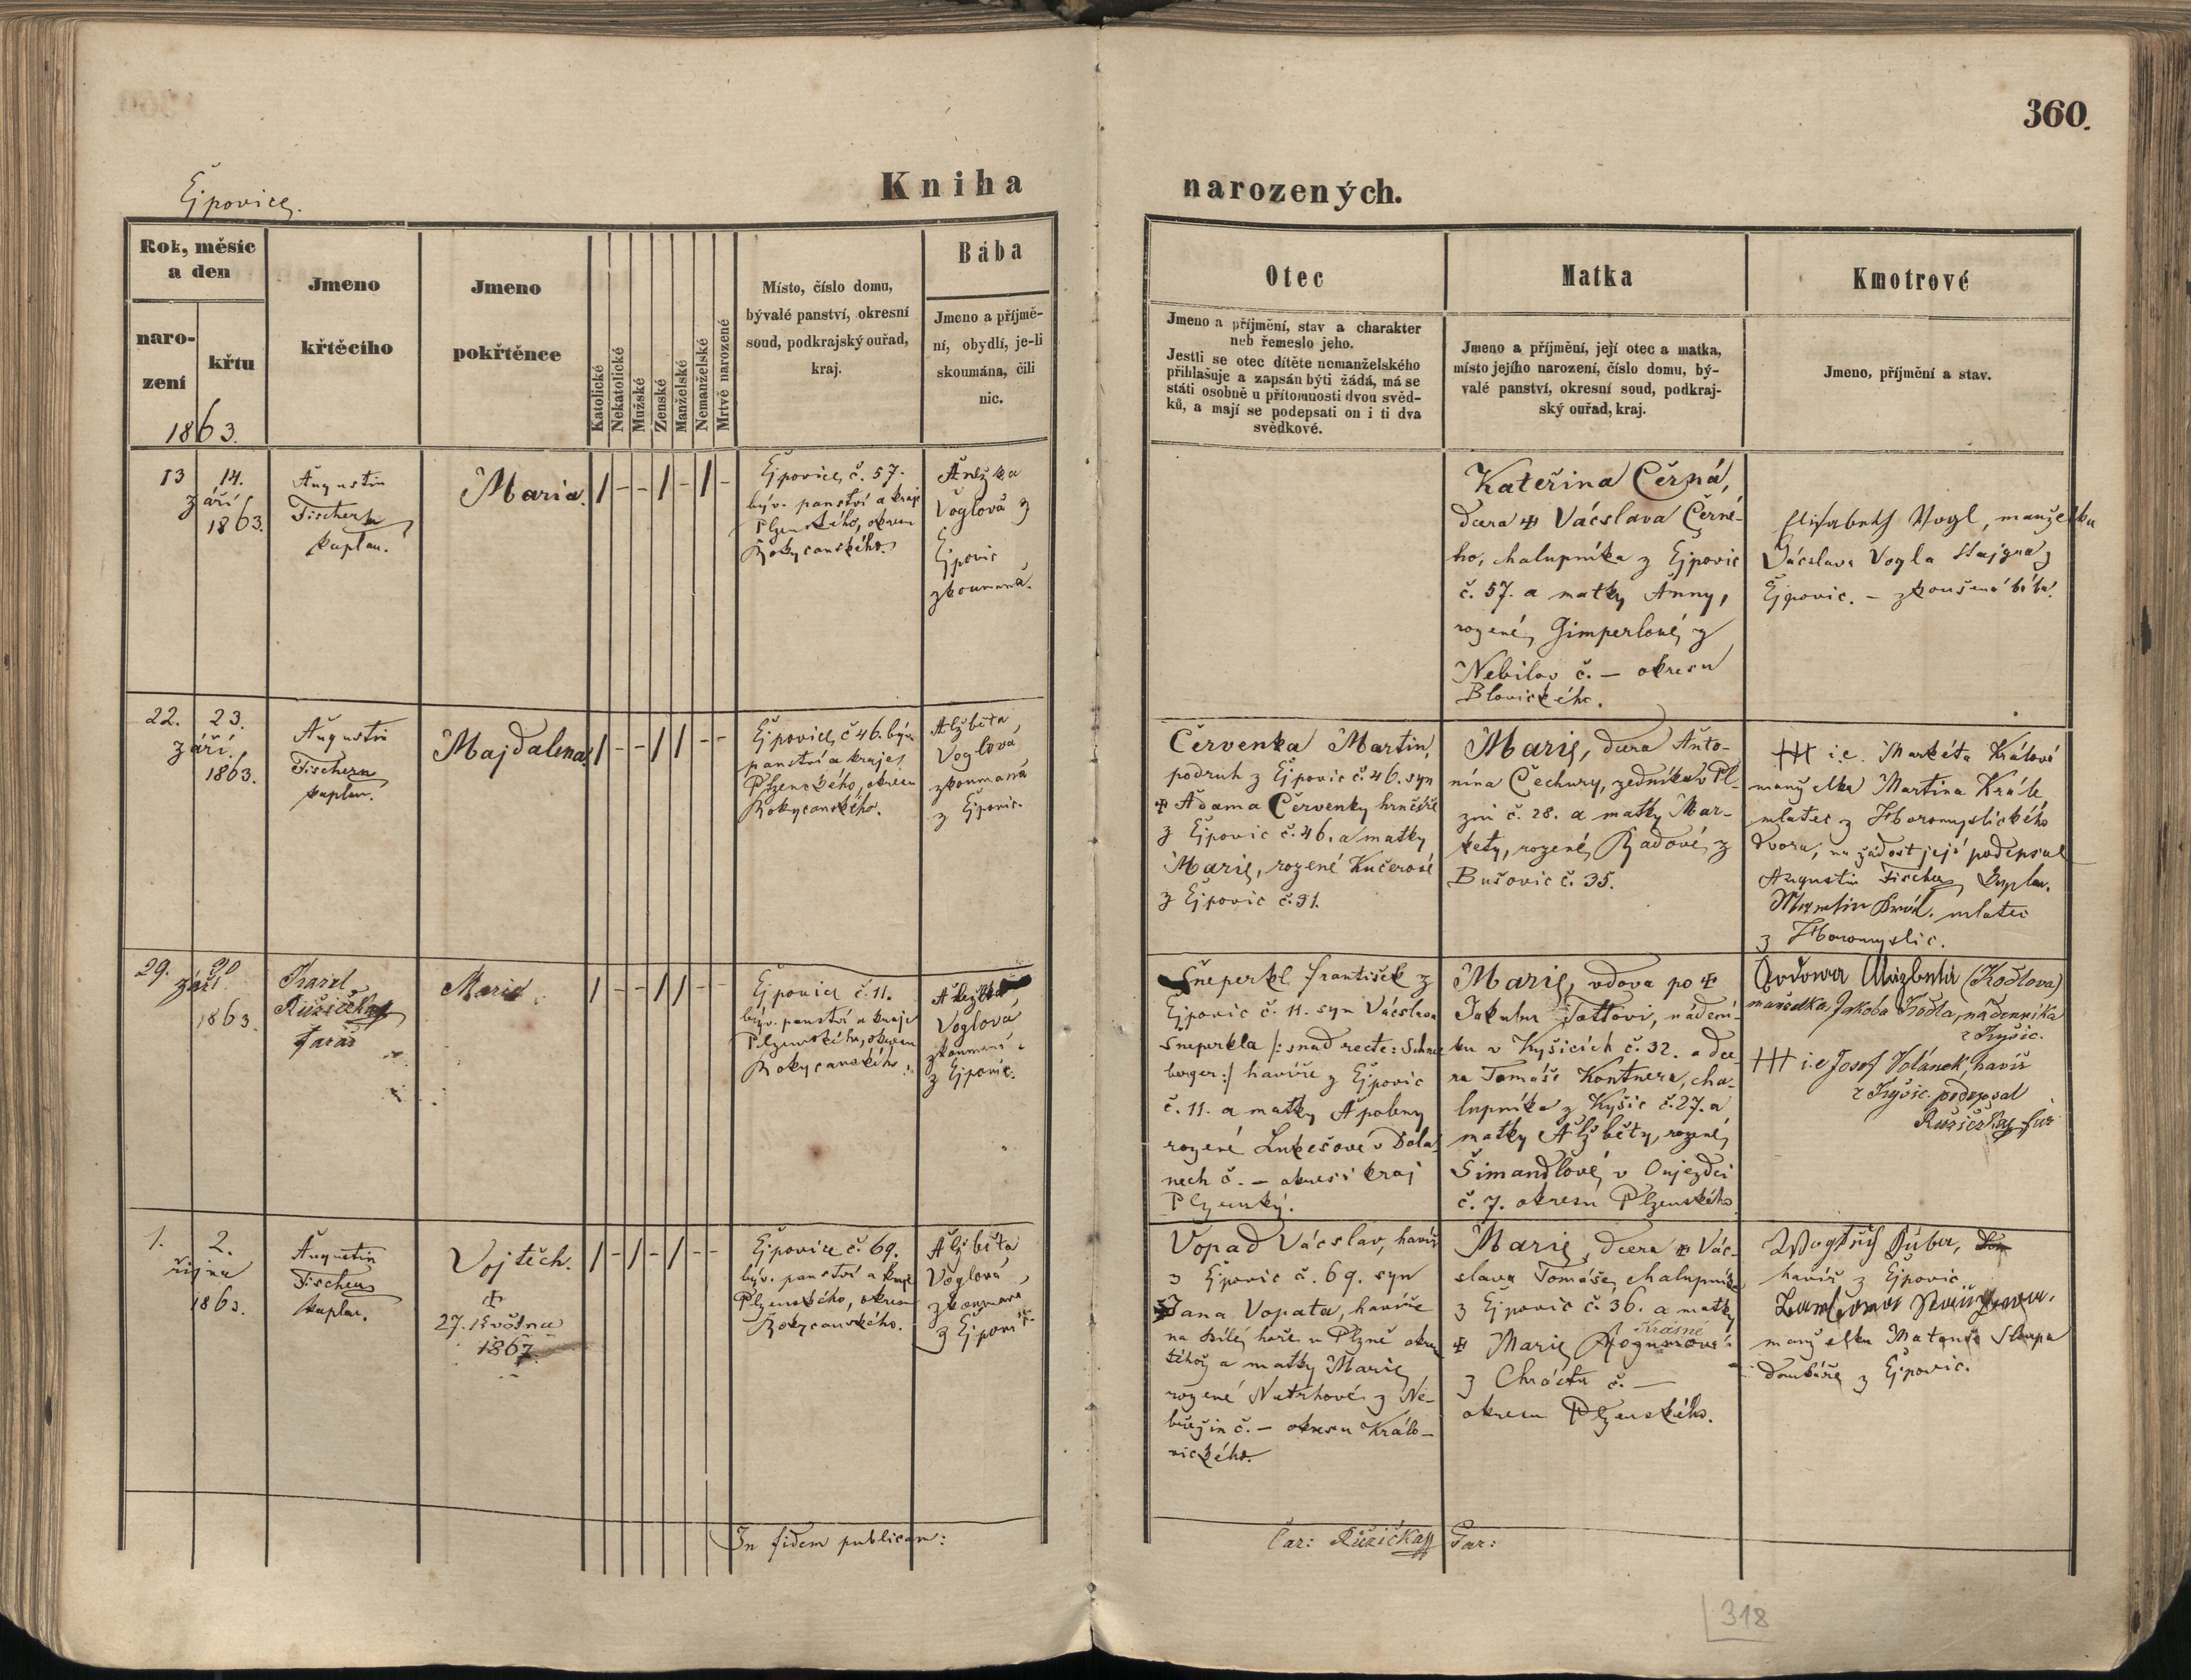 360.
Ejpovice.
Kniha narozených.
Rok, měsíc
a den
naro-
zení
křtu
1863.
Jmeno
křtěcího
Jmeno
pokřtěnce
Katolické
Nekatolické
Mužské
Ženské
Manželské
Nemanželské
Mrtvě narozené
Místo, číslo domu,
bývalé panství, okresní
soud, podkrajský ouřad,
kraj.
Bába
Jmeno a příjmě-
ní, obydlí, je-li
skoumána, čili
nic.
Otec
Jmeno a příjmění, stav a charakter
neb řemeslo jeho.
Jestli se otec dítěte nemanželského
přihlašuje a zapsán býti žádá, má se
státi osobně u přítomnosti dvou svěd-
ků, a mají se podepsati on i ti dva
svědkové.
Matka
Jmeno a příjmění, její otec a matka,
místo jejího narození, číslo domu, bý-
valé panství, okresní soud, podkraj-
ský ouřad, kraj.
Kmotrové
Jmeno, příjmění a stav.
13 14.
září
1863.
Augustin
Fischer
kaplan.
Maria.
/ - - / - / -
Ejpovice, č. 57.
býv. panství a kraje
Plzenského, okresu
Rokycanského.
Anežka
Voglová z
Ejpovic
zkoumaná.
Kateřina Černá,
dcera ✠ Vácslava Černé-
ho, chalupníka z Ejpovic
č. 57. a matky Anny,
rozené, Gimperlové, z
Nebilov č. — okresu
Blovického.
Elisabeth Vogl, manželka
Vácslava Vogla Hajzna z
Ejpovic. – zkoušená bába.
22. 23.
září.
1863.
Augustin
Fischer
kaplan.
Majdalena.
/ - - / / - -
Ejpovice, č 46. býv.
panství a kraje
Plzenského, okresu
Rokycanského.
Alžběta,
Voglová,
zkoumaná
z Ejpovic.
Červenka Martin,
podruh z Ejpovic č. 46. syn
✠ Adama Červenky hrnčíře
z Ejpovic č. 46. a matky
Marie, rozené Kučerové
z Ejpovic č. 91.
Marie, dcera Anto-
nína Čechury, zedníka v Pl-
zni č. 28. a matky Mar-
kety, rozené, Radové, z
Bušovic č. 35.
+++ i.e. Markéta Králová
manželka Martina Krále
mlatec z Horomyslického
dvora, na žádost její podepsal
Augustin Fischer, kaplan.
Martin Král. mlatec
z Horomyslic.
29. 30
září.
1863.
Karel
Růžička
farář
Marie
/ - - / / - -
Ejpovice č. 11.
býv. panství a kraje
Plzenského, okresu
Rokycanského.
Alžběta
Voglová
zkoumaná
z Ejpovic.
Šneperkl František z
Ejpovic č. 11. syn Vácslava
Šneperkla /: snad recte: Schnee-
berger:/ havíře z Ejpovic
č. 11. a matky Apoleny
rozené Lukešové v Dola-
nech č. — okres i kraj
Plzenský.
Marie, vdova po ✠
Jakubu Tottovi, nádení-
ku v Kyšicích č. 32. a dce-
ra Tomáše Kontnera, cha-
lupníka z Kyšic č. 27. a
matky Alžběty, rozené,
Šimandlové, v Oujezdci
č. 7. okresu Plzenského.
(Kodlova)
manželka Jakoba Kodla, nádenníka
z Kyšic.
+++ i.e Josef Volánek, havíř
z Kyšic. podepsal
Růžička far
1. 2.
října
1863.
Augustin
Fischer
kaplan.
Vojtěch.
✠
27. Května
1867.
/ - / - / - -
Ejpovice č. 69.
býv. panství a kraje
Plzenského, okresu
Rokycanského.
Alžběta
Voglová,
zkoumaná
z Ejpovic.
Vopad Vácslav, havíř
z Ejpovic č. 69. syn
Jana Vopata, havíře
na Bílé hoře u Plzně okresu
téhož a matky Marie
rozené Netrhové z Ne-
břežin č. — okresu Králo-
vického.
Marie, dcera ✠ Vác-
slava Tomáše, chalupníka
z Ejpovic č. 36. a matky
Krásné
✠ Marie
z Chrástu č. —
okresu Plzenského.
Duba,
havíř z Ejpovic.
manželka Matouše Sloupa
domkáře z Ejpovic.
In fidem publicam:
Car: Růžička
Far:
318